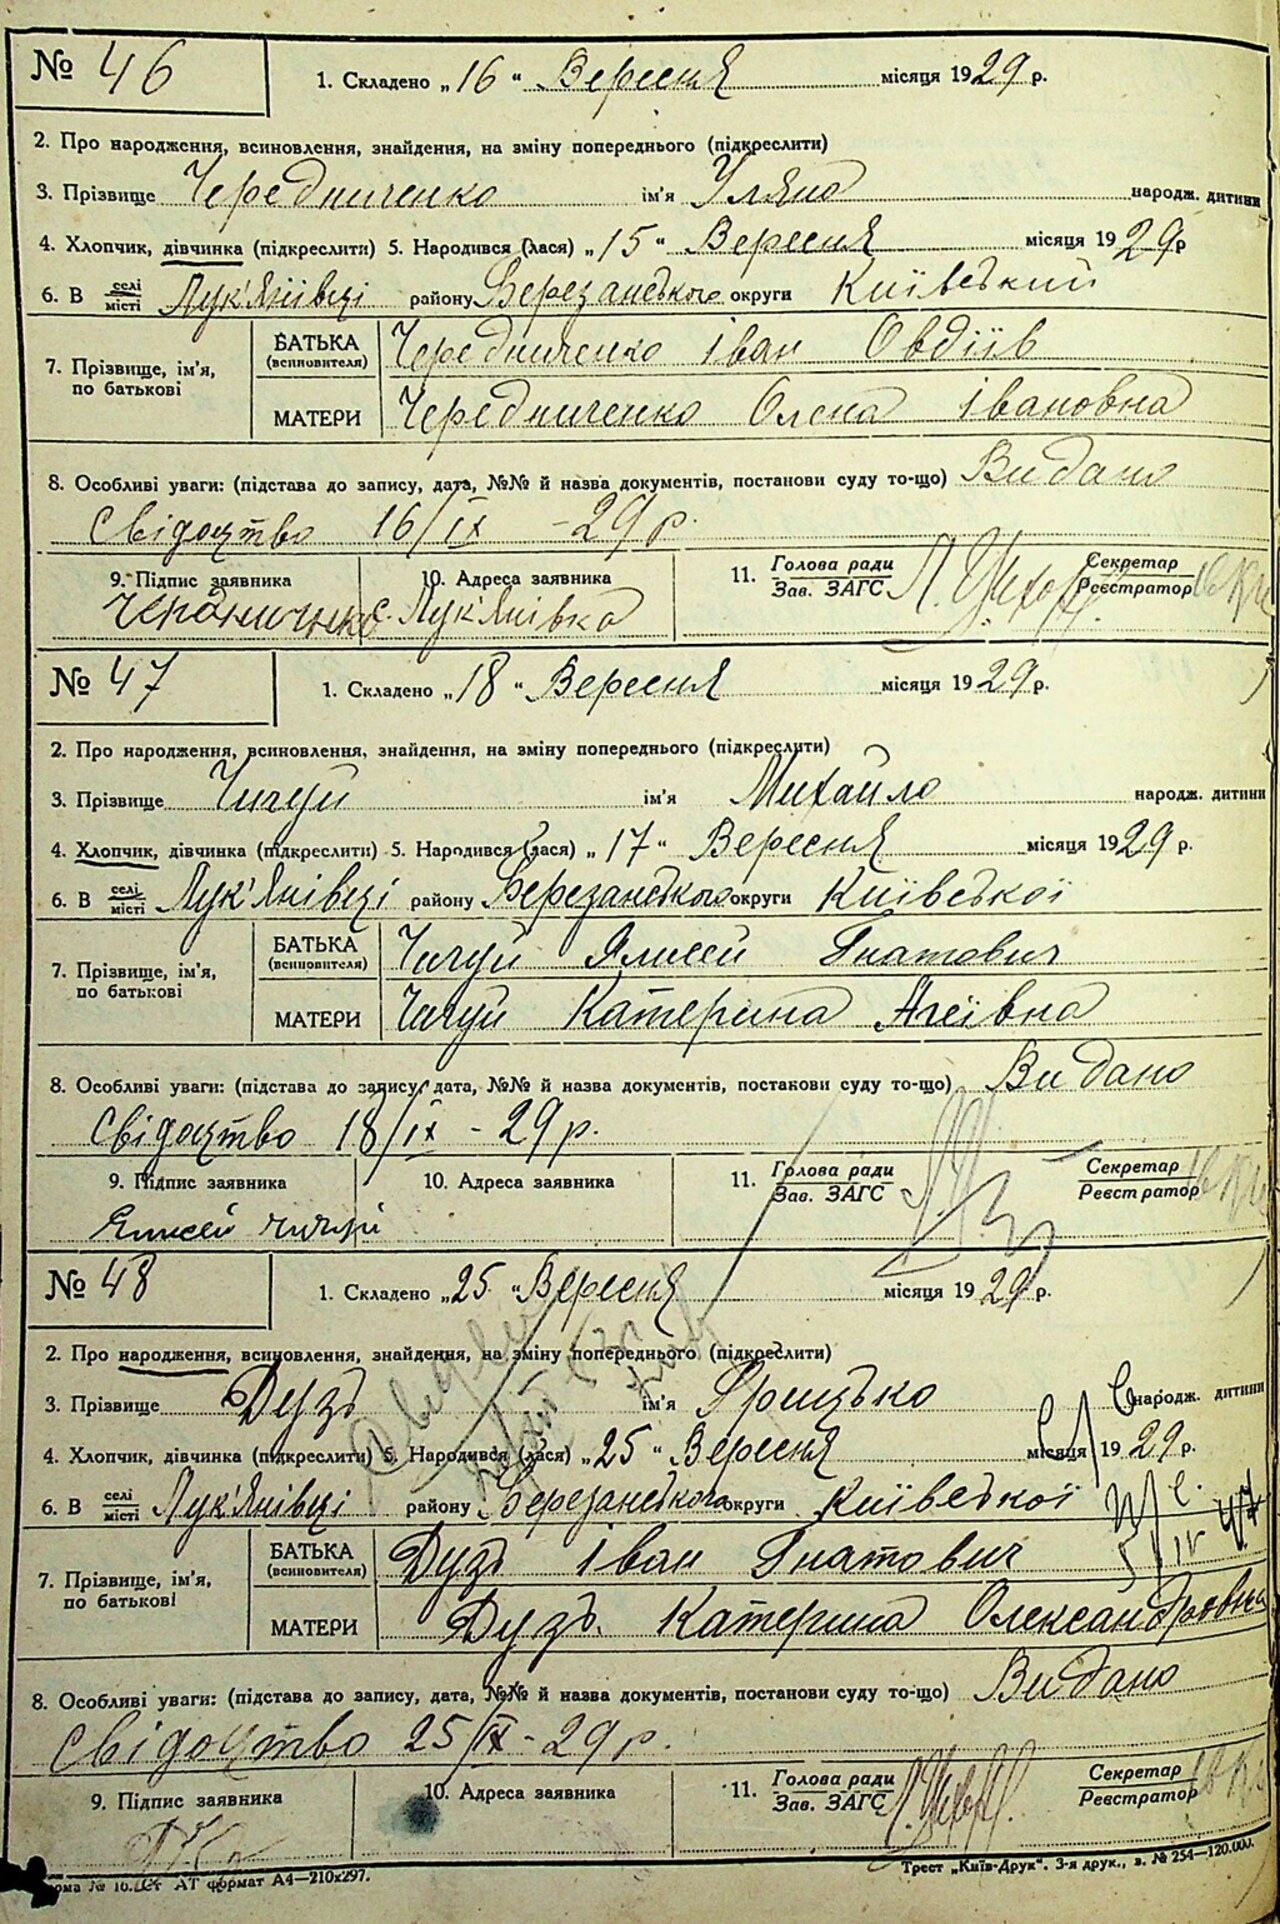 № 46
1. Складено „16“ Вересня місяця 1929 р.
2. Про народження, всиновлення, знайдення, на зміну попереднього (підкреслити)
3. Прізвище Чередниченко ім'я Уляна народж. дитини
4. Хлопчик, дівчинка (підкреслити) 5. Народився (лася) „15“ Вересня місяця 1929 р
6. В селі/місті Лук'янівці району Березанського округи Київський
7. Прізвище, ім'я, по батькові
БАТЬКА (всиновителя) Чередниченко Іван Овдіїв
МАТЕРИ Чередниченко Олена Івановна
8. Особливі уваги: (підстава до запису, дата, №№ й назва документів, постанови суду то-що) Видано
Свідоцтво 16/IX - 29 р.
9. Підпис заявника 10. Адреса заявника 11. Голова ради/Зав. ЗАГС Секретар/Реєстратор
с. Лук'янівка
№ 47
1. Складено „18“ Вересня місяця 1929 р.
2. Про народження, всиновлення, знайдення, на зміну попереднього (підкреслити)
3. Прізвище Чичуй ім'я Михайло народж. дитини
4. Хлопчик, дівчинка (підкреслити) 5. Народився (лася) „17“ Вересня місяця 1929 р.
6. В селі/місті Лук'янівці району Березанського округи Київської
7. Прізвище, ім'я, по батькові
БАТЬКА (всиновителя) Чичуй Ялисей Гнатович
МАТЕРИ Чичуй Катерина Агеївна
8. Особливі уваги: (підстава до запису, дата, №№ й назва документів, постакови суду то-що) Видано
Свідоцтво 18/IX - 29 р.
9. Підпис заявника 10. Адреса заявника 11. Голова ради/Зав. ЗАГС Секретар/Реєстратор
Елисей Чичуй
№ 48
1. Складено „25“ Вересня місяця 1929 р.
2. Про народження, всиновлення, знайдення, на зміну попереднього (підкреслити)
3. Прізвище Дузь ім'я Грицько народж. дитини
4. Хлопчик, дівчинка (підкреслити) 5. Народився (лася) „25“ Вересня місяця 1929 р.
6. В селі/місті Лук'янівці району Березанського округи Київської
7. Прізвище, ім'я, по батькові
БАТЬКА (всиновителя) Дузь Іван Гнатович
МАТЕРИ Дузь Катерина Олександровна
8. Особливі уваги: (підстава до запису, дата, №№ й назва документів, постанови суду то-що) Видано
Свідоцтво 25/IX - 29 р.
9. Підпис заявника 10. Адреса заявника 11. Голова ради/Зав. ЗАГС Секретар/Реєстратор
АТ формат А4—210х297.
Трест „Київ-Друк“. 3-я друк., в. № 254—120.000.